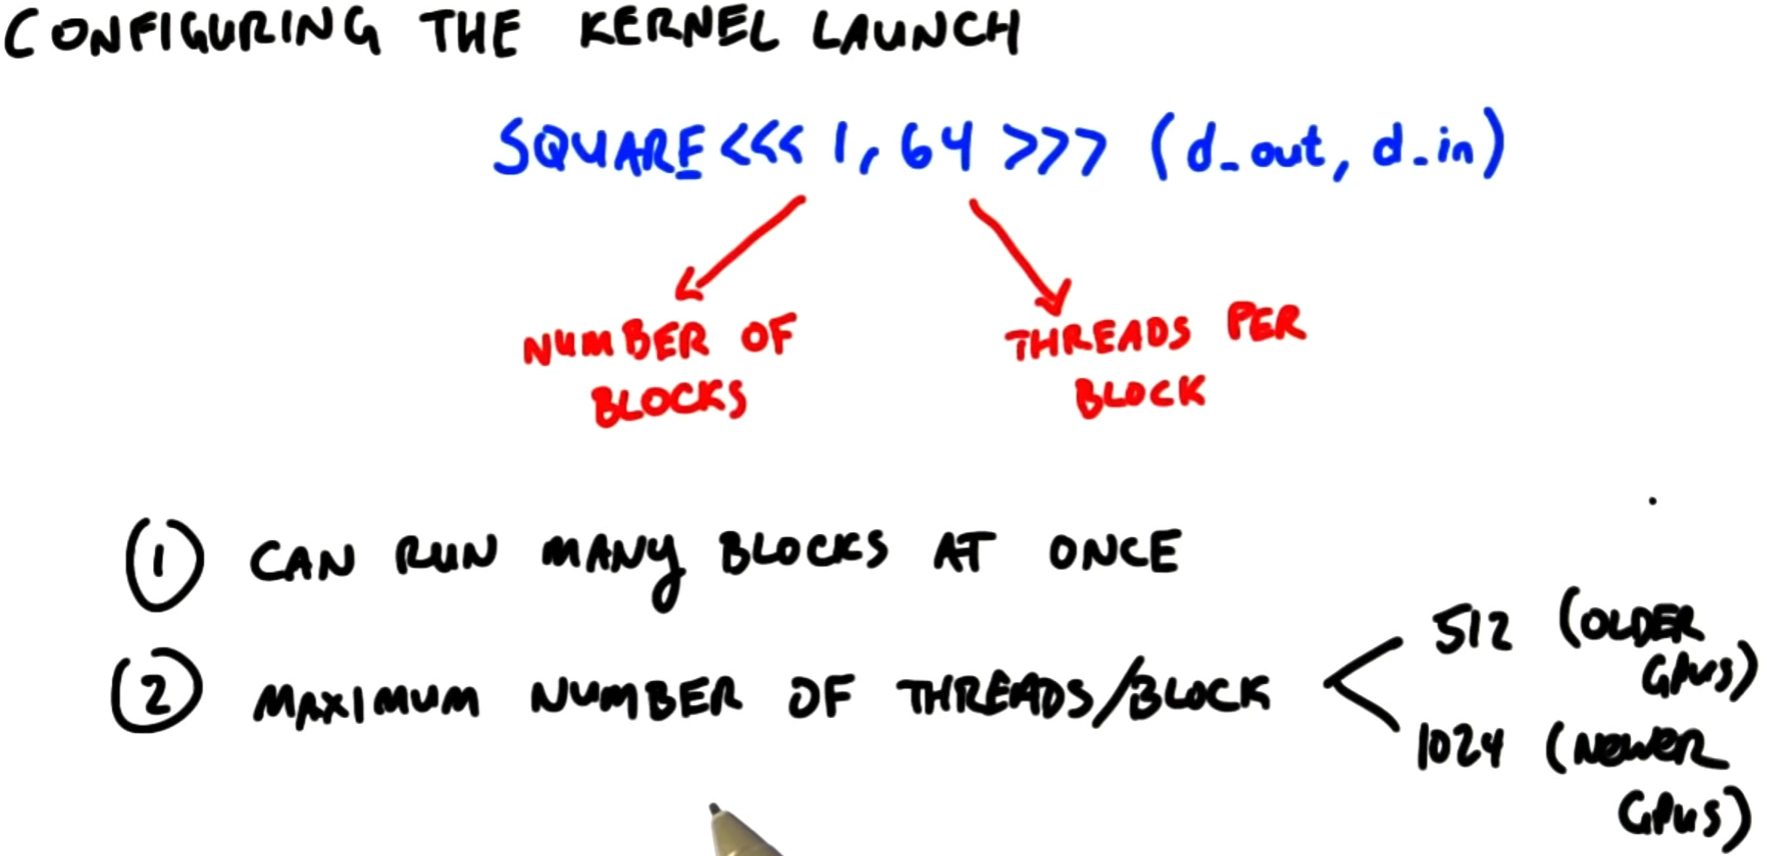 CONFIGURING THE KERNEL LAUNCH
SQUARE<<< 1, 64 >>> (d_out, d_in)
NUMBER OF
BLOCKS
THREADS PER
BLOCK
1 CAN RUN MANY BLOCKS AT ONCE
2 MAXIMUM NUMBER OF THREADS/BLOCK
512 (OLDER
GPUS)
1024 (NEWER
GPUS)